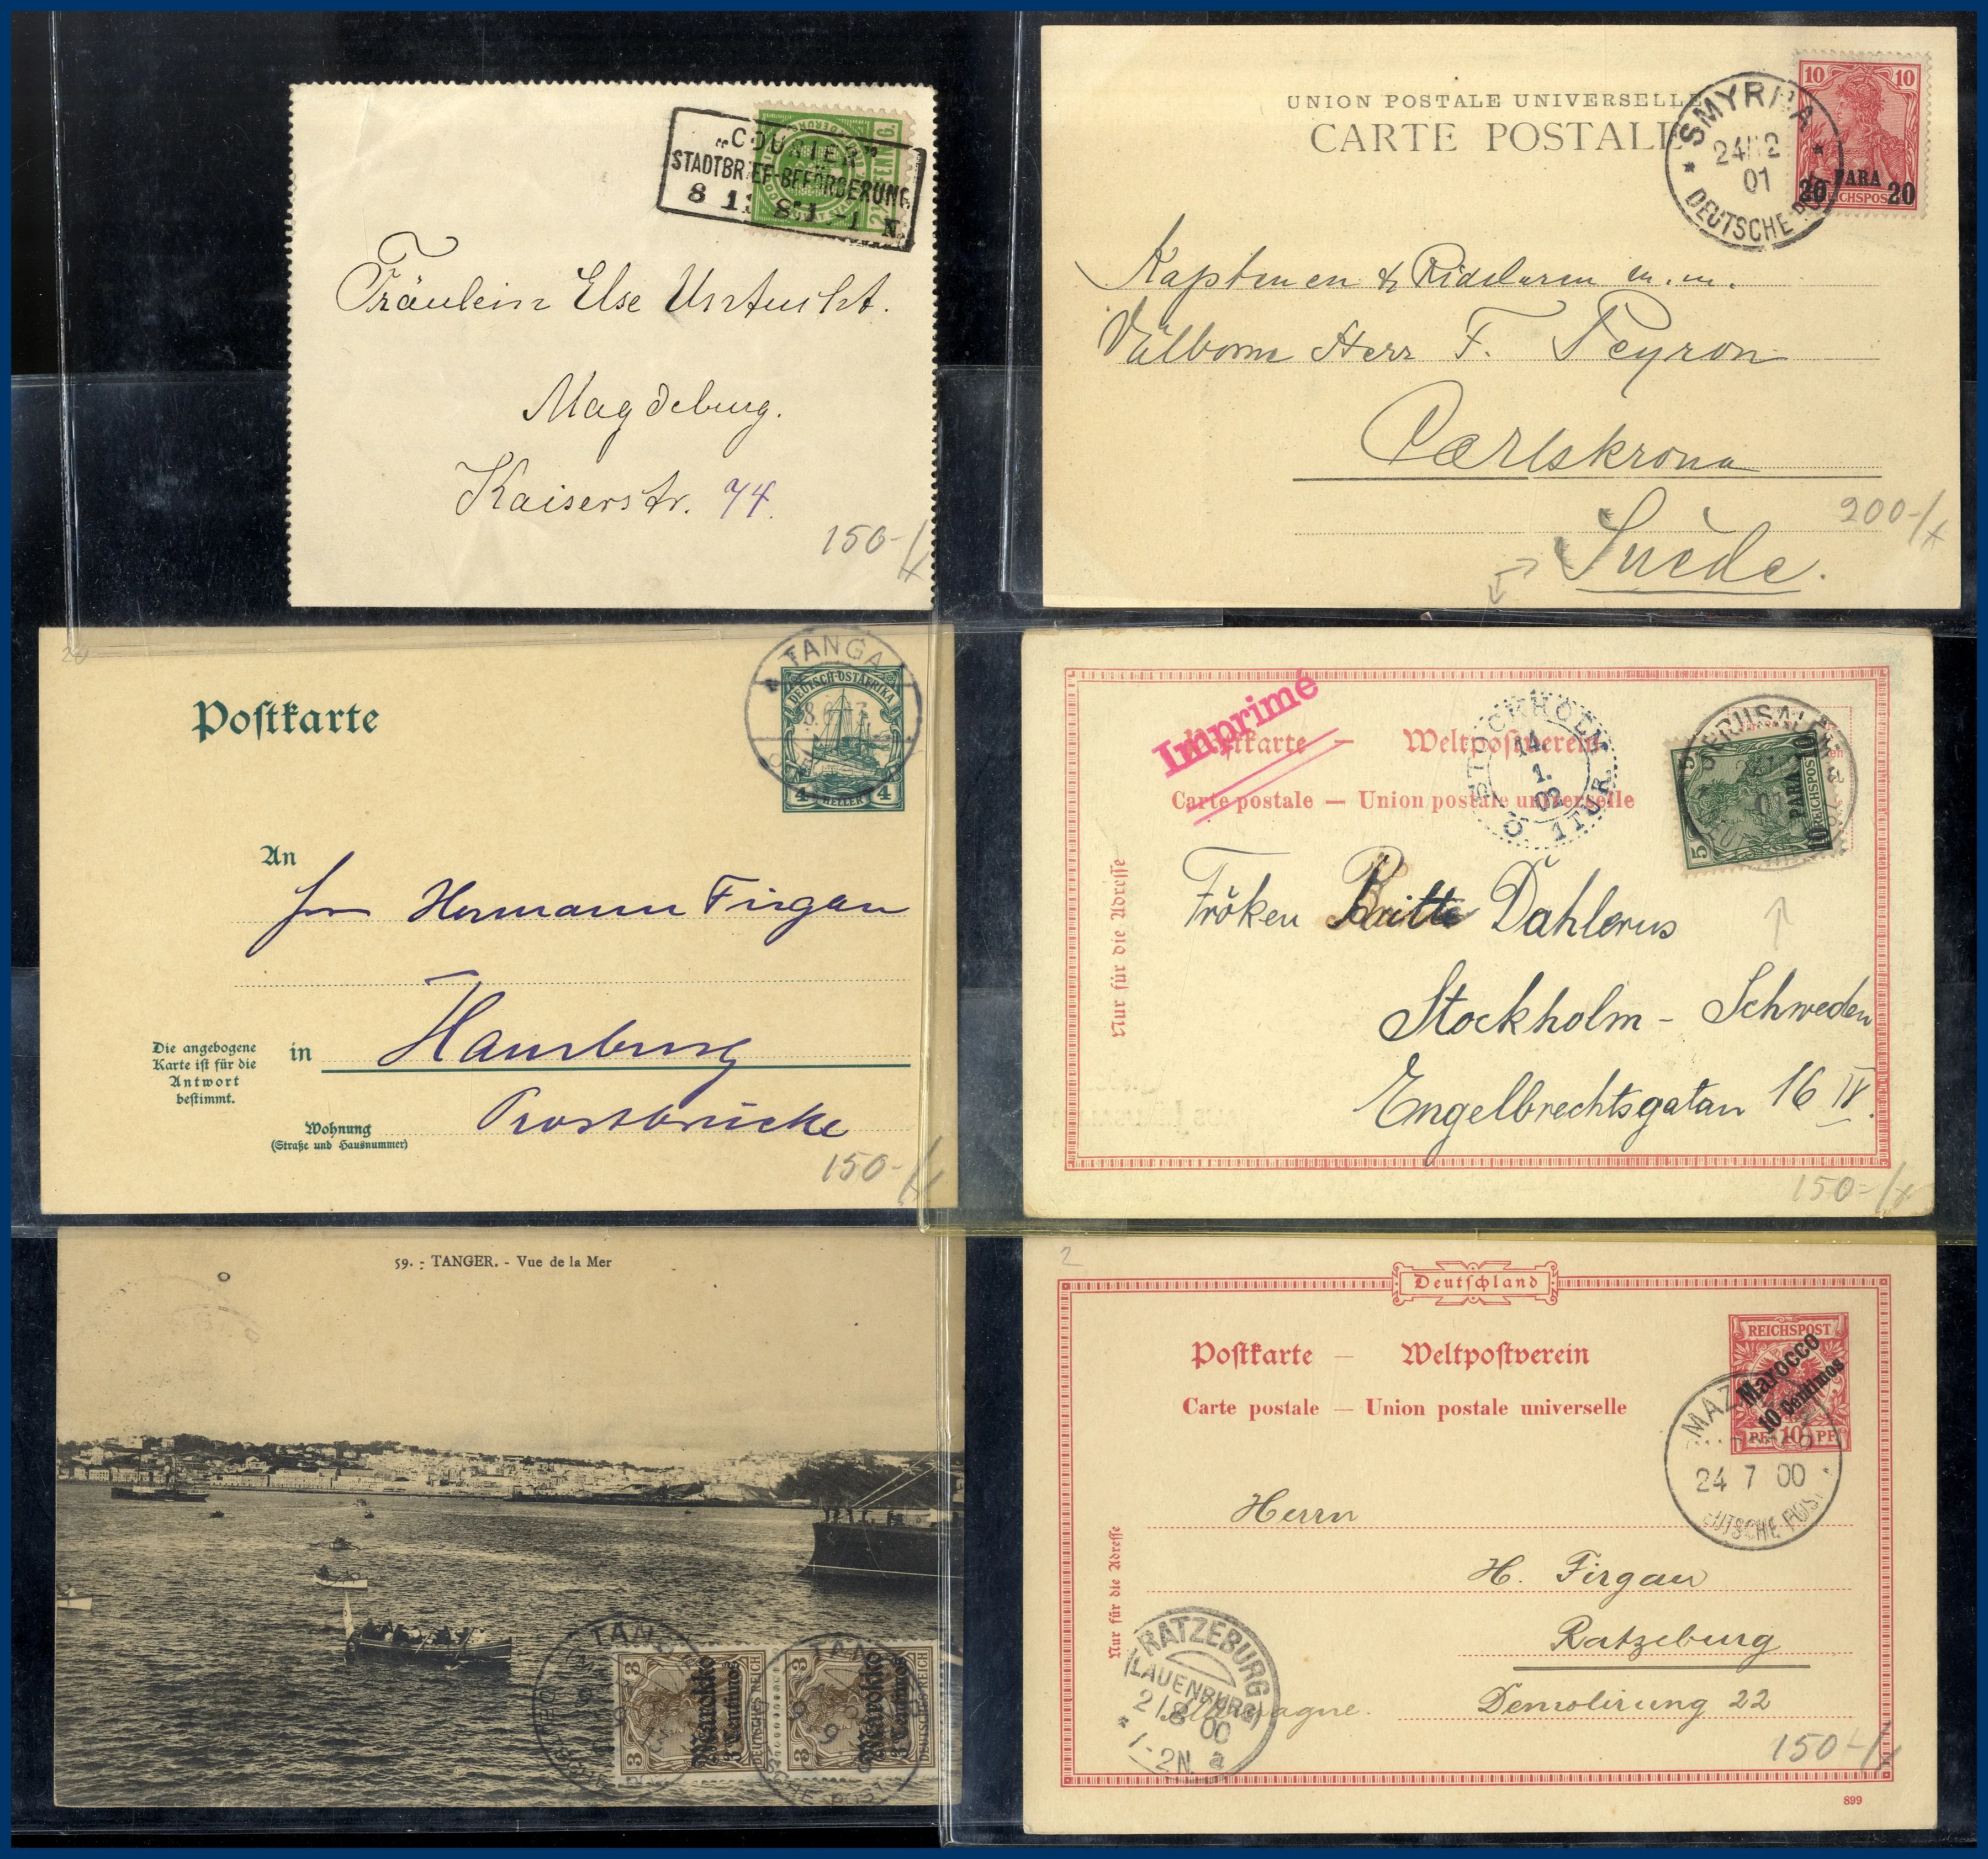 "COURIER"
STADTBRIEF-BEFÖRDERUNG
Fräulein Else
Magdeburg.
Kaiserstr. 74.
150-/
UNION POSTALE UNIVERSELLE
CARTE POSTALE
10 10
20 PARA 20
REICHSPOST
SMYRNA
24 12
01
DEUTSCHE POST
Välborne Herr F. Peyron
Carlskrona
Suède.
200-/
20
Postkarte
TANGA
DEUTSCH-OSTAFRIKA
4 HELLER 4
An
Hermann Firgau
in Hamburg
Die angebogene
Karte ist für die
Antwort
bestimmt.
Wohnung
(Straße und Hausnummer)
150-/
Imprimé
Postkarte — Weltpostverein
Carte postale — Union postale universelle
STOCKHOLM
14.
1.
02
1 TUR.
JERUSALEM
5 5
10 PARA 10
REICHSPOST
Nur für die Adresse
Fröken Britte Dahlerus
Stockholm - Schweden
Engelbrechtsgatan 16 IV.
150-/
59. - TANGER. - Vue de la Mer
TANGER
DEUTSCHE POST
3 3
Marokko
3 Centimos
DEUTSCHES REICH
3 3
Marokko
3 Centimos
DEUTSCHES REICH
TANGER
DEUTSCHE POST
2
Deutschland
Postkarte — Weltpostverein
Carte postale — Union postale universelle
REICHSPOST
Marocco
10 Centimos
PF 10 PF
24 7 00
DEUTSCHE POST
Nur für die Adresse
Herrn
H. Firgau
Ratzeburg
Demolirung 22
Allemagne.
RATZEBURG
(LAUENBURG)
2/8 00
1-2N. a
150-/
899